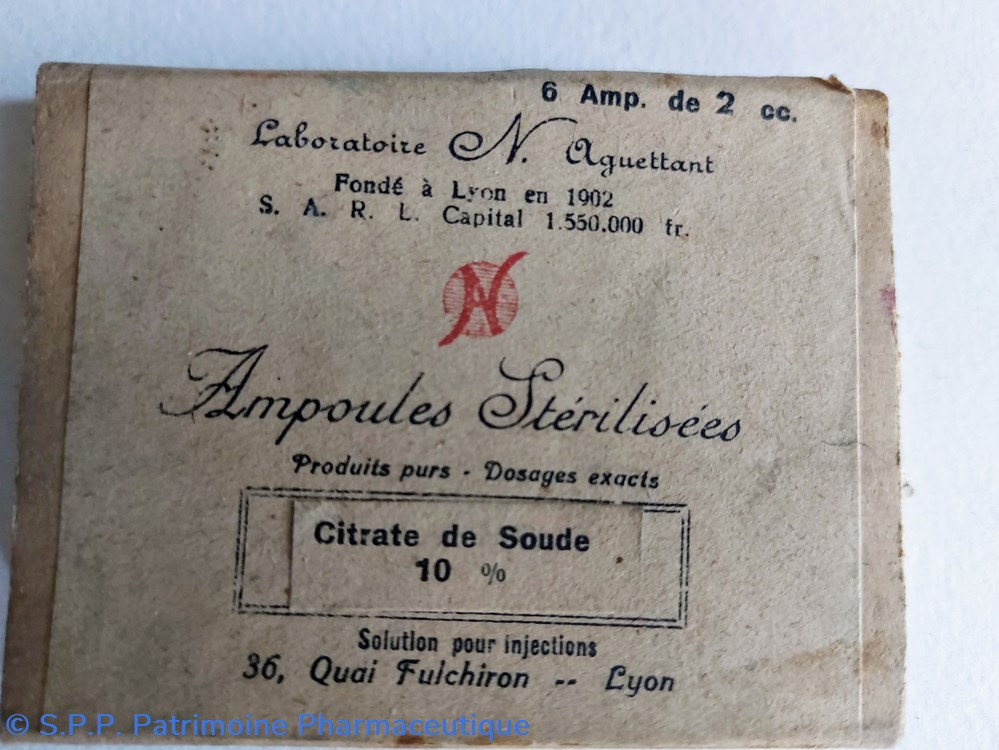 6 Amp. de 2 cc.
Laboratoire N. Aguettant
Fondé à Lyon en 1902
S. A. R. L. Capital 1.550.000 fr.
Ampoules Stérilisées
Produits purs - Dosages exacts
Citrate de Soude
10 %
Solution pour injections
36, Quai Fulchiron -- Lyon
© S.P.P. Patrimoine Pharmaceutique